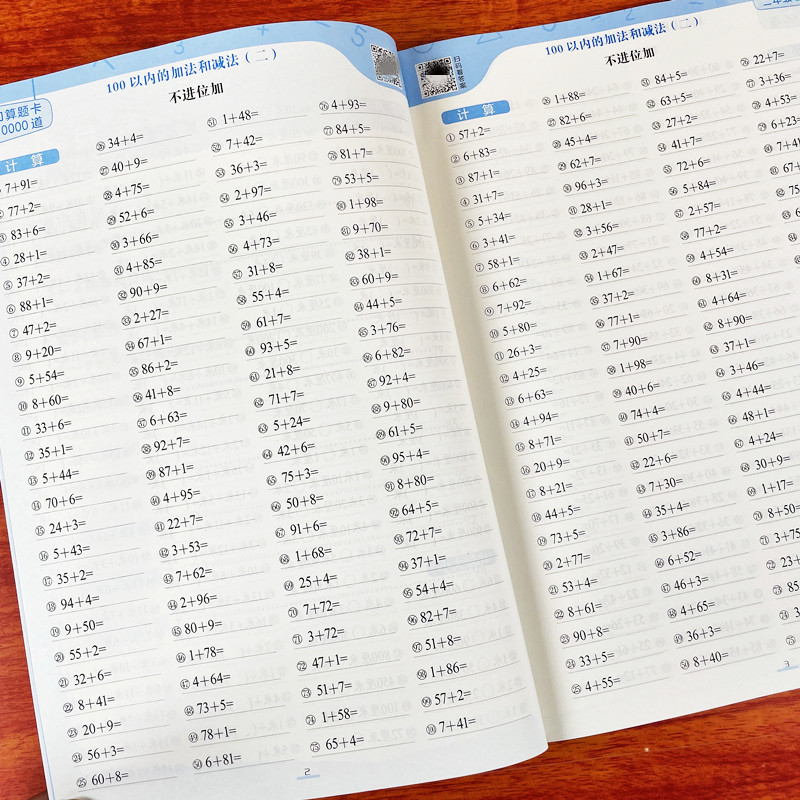 口算题卡
10000道
100以内的加法和减法（二）
不进位加
计 算
7+91=
② 77+2=
③ 83+6=
④ 28+1=
⑤ 37+2=
⑥ 88+1=
⑦ 47+2=
⑧ 9+20=
⑨ 5+54=
⑩ 8+60=
⑪ 33+6=
⑫ 35+1=
⑬ 5+44=
⑭ 70+6=
⑮ 24+3=
⑯ 5+43=
⑰ 35+2=
⑱ 94+4=
⑲ 9+50=
⑳ 55+2=
㉑ 32+6=
㉒ 8+41=
㉓ 20+9=
㉔ 56+3=
㉕ 60+8=
㉖ 34+4=
㉗ 40+9=
㉘ 4+75=
㉙ 52+6=
㉚ 3+66=
㉛ 4+85=
㉜ 90+9=
㉝ 2+27=
㉞ 67+1=
㉟ 86+2=
㊱ 41+8=
㊲ 6+63=
㊳ 92+7=
㊴ 87+1=
㊵ 4+95=
㊶ 22+7=
㊷ 3+53=
㊸ 7+62=
㊹ 2+96=
㊺ 80+9=
㊻ 1+78=
㊼ 4+64=
㊽ 73+5=
㊾ 78+1=
㊿ 6+81=
51 1+48=
52 7+42=
53 36+3=
54 2+97=
55 3+46=
56 4+73=
57 31+8=
58 55+4=
59 61+7=
60 93+5=
61 21+8=
62 71+7=
63 5+24=
64 42+6=
65 75+3=
66 50+8=
67 91+6=
68 1+68=
69 25+4=
70 7+72=
71 3+72=
72 47+1=
73 51+7=
74 1+58=
75 65+4=
76 4+93=
77 84+5=
78 81+7=
79 53+5=
80 1+98=
81 9+70=
82 38+1=
83 60+9=
84 44+5=
85 3+76=
86 6+82=
87 92+4=
88 9+80=
89 61+5=
90 95+4=
91 8+80=
92 64+5=
93 72+7=
94 37+1=
95 54+4=
96 82+7=
97 51+8=
98 1+86=
99 57+2=
100 7+41=
2
扫码看答案
100以内的加法和减法（二）
不进位加
计 算
① 57+2=
② 6+83=
③ 87+1=
④ 31+7=
⑤ 5+34=
⑥ 3+41=
⑦ 58+1=
⑧ 6+62=
⑨ 7+92=
⑩ 5+80=
⑪ 26+3=
⑫ 4+25=
⑬ 6+63=
⑭ 4+94=
⑮ 8+71=
⑯ 20+9=
⑰ 8+21=
⑱ 44+5=
⑲ 73+5=
⑳ 2+77=
㉑ 53+4=
㉒ 8+61=
㉓ 90+8=
㉔ 33+5=
㉕ 4+55=
㉖ 1+88=
㉗ 82+6=
㉘ 45+4=
㉙ 62+7=
㉚ 96+3=
㉛ 28+1=
㉜ 3+56=
㉝ 2+47=
㉞ 1+67=
㉟ 37+2=
㊱ 77+1=
㊲ 7+90=
㊳ 1+98=
㊴ 40+6=
㊵ 74+4=
㊶ 50+7=
㊷ 22+6=
㊸ 7+30=
㊹ 35+4=
㊺ 3+86=
㊻ 6+52=
㊼ 46+3=
㊽ 4+65=
㊾ 36+3=
㊿ 8+40=
51 84+5=
52 63+5=
53 27+2=
54 41+7=
55 72+6=
56 5+84=
57 2+57=
58 77+2=
59 4+54=
60 8+31=
61 4+64=
62 8+90=
63 37+1=
64 3+46=
65 4+44=
66 48+1=
67 4+24=
68 30+9=
69 1+17=
70 8+50=
71 3+75
72 23+
73 85
76 22+7=
77 3+36=
78 4+53=
79 6+23=
80 7+41
3